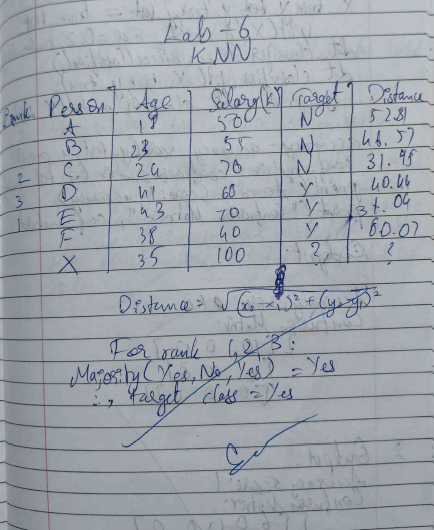 Lab - 6
KNN
Rank Person Age Salary(k) Target Distance
A 18 50 N 52.81
B 23 55 N 46.57
2 C 24 70 N 31.95
3 D 41 60 Y 40.44
1 E 43 70 Y 31.04
F 38 40 Y 60.07
X 35 100 ? ?
Distance = √(x₂-x₁)² + (y₂-y₁)²
For rank 1, 2, 3 :
Majority (Yes, No, Yes) = Yes
∴, target class = Yes